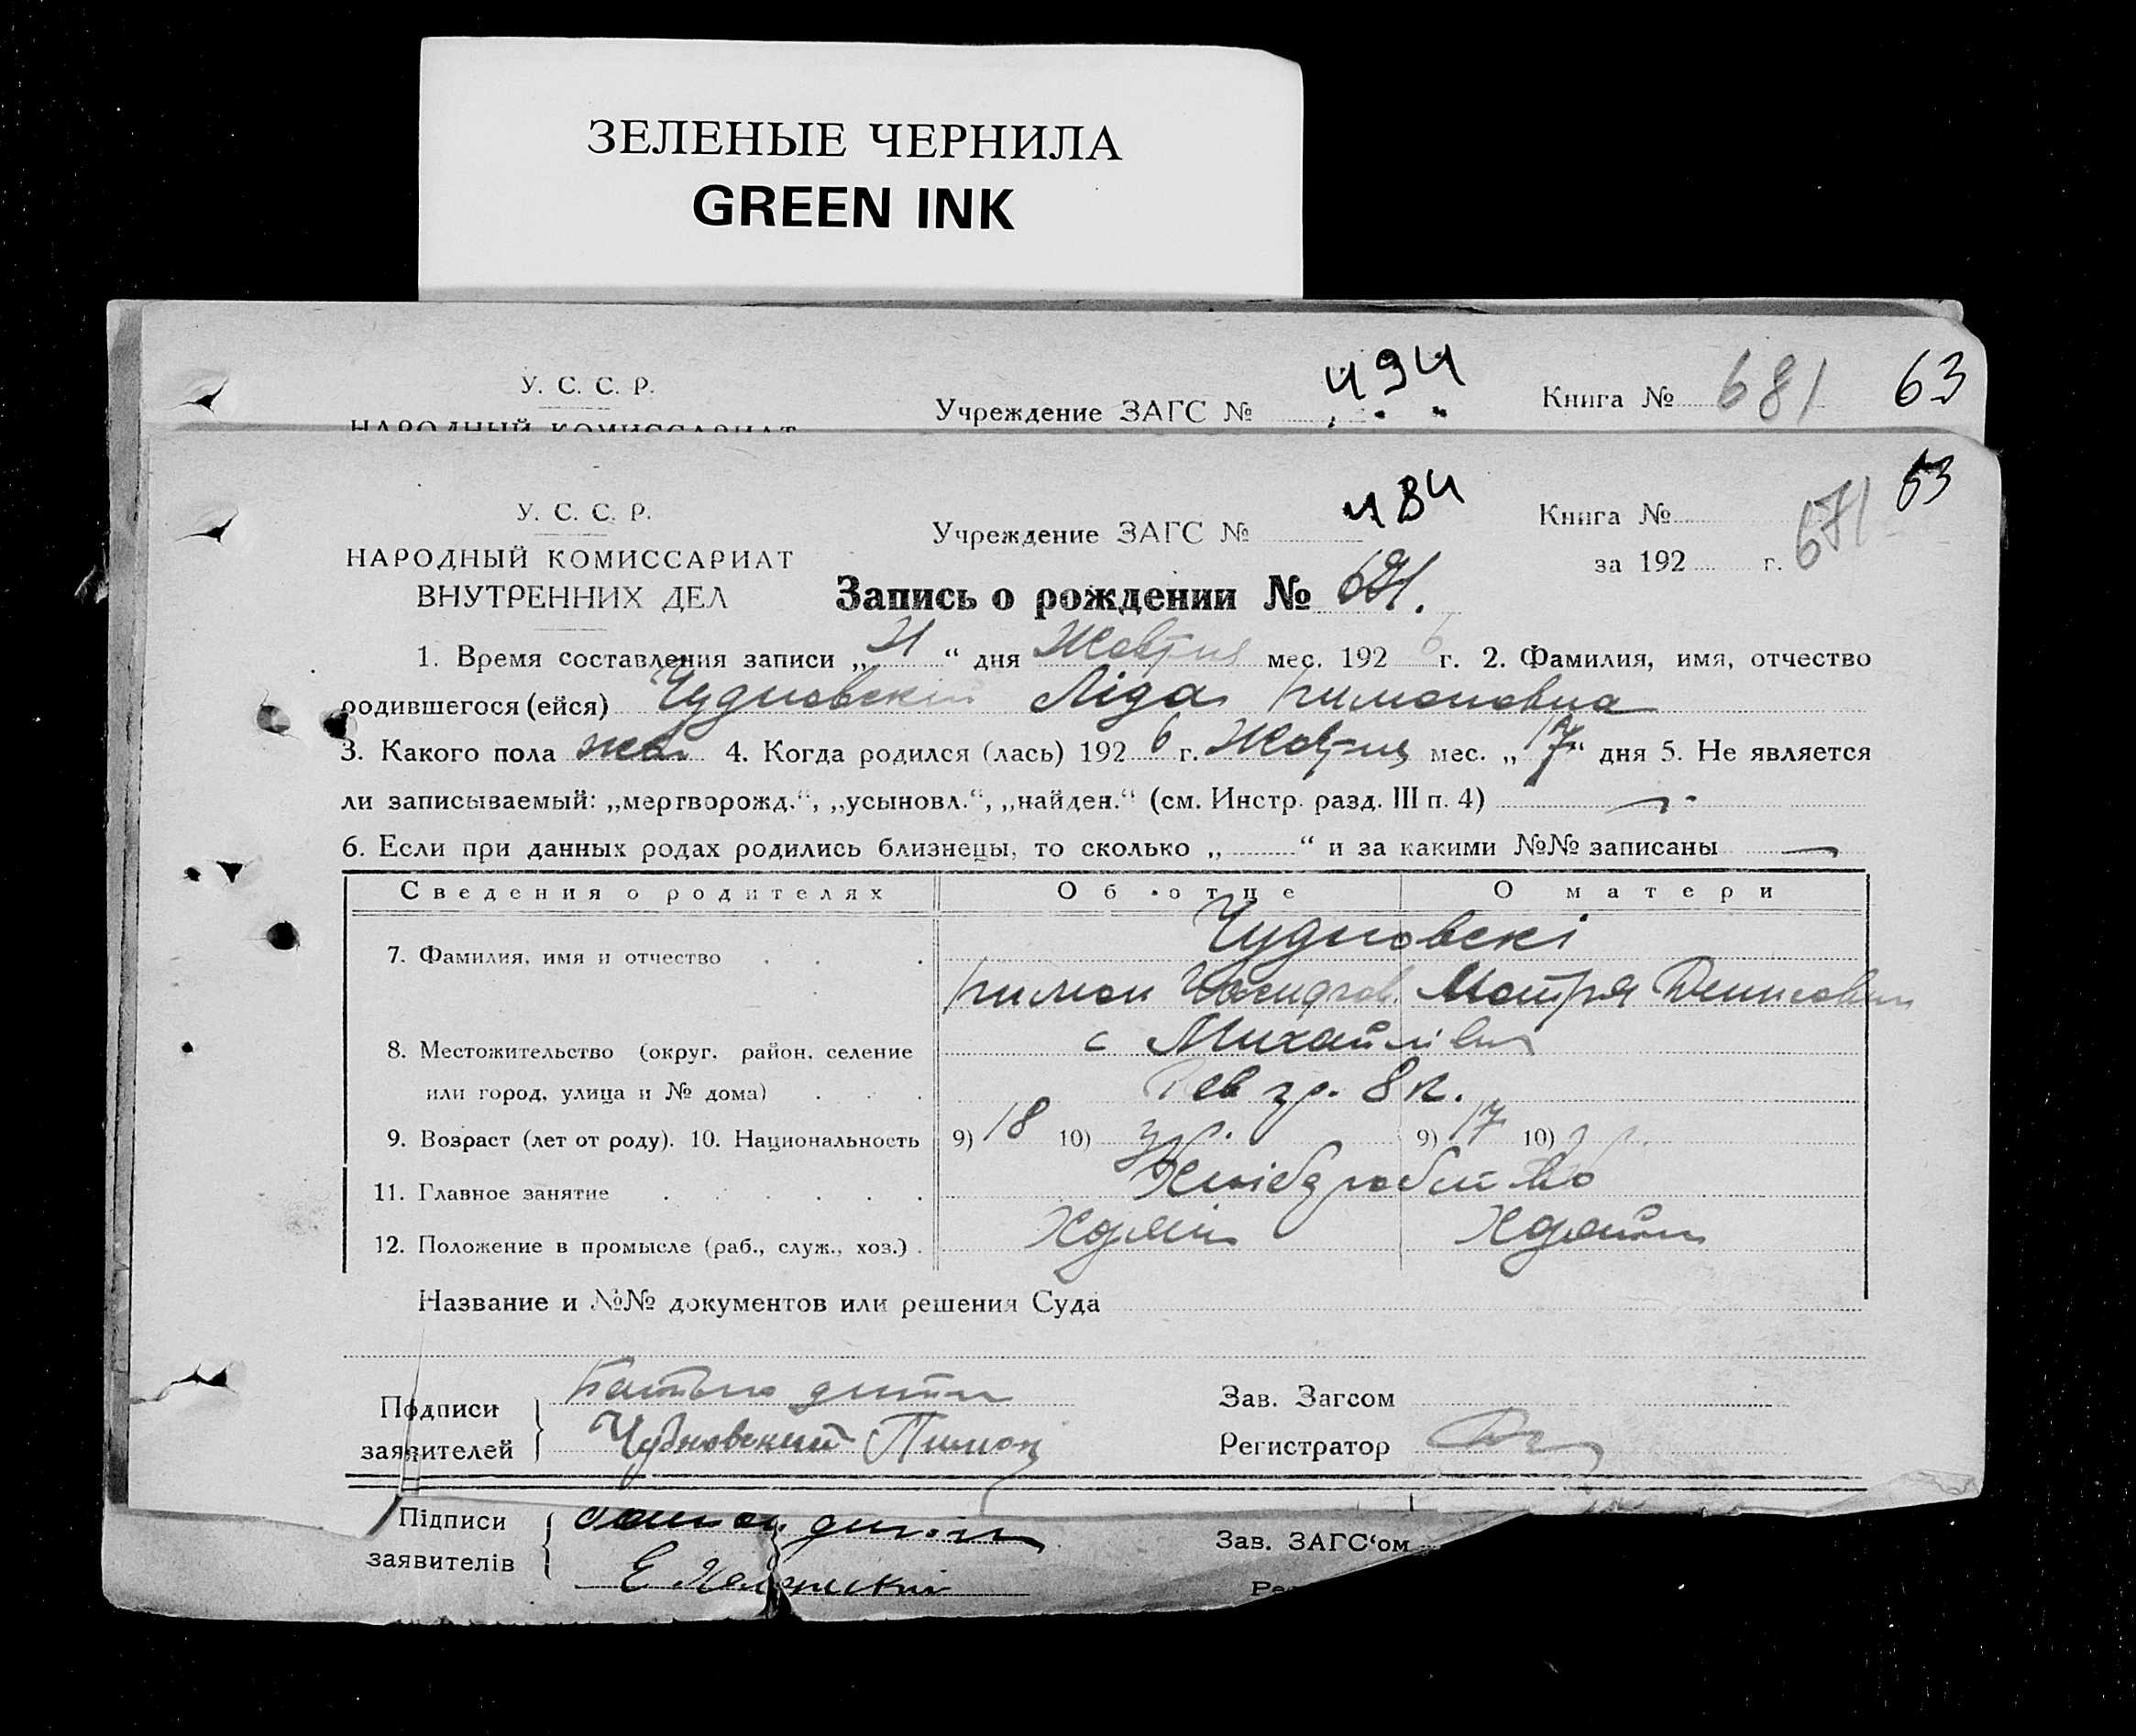 ЗЕЛЕНЫЕ ЧЕРНИЛА
GREEN INK
У. С. С. Р.
Учреждение ЗАГС № 494
Книга № 681 63
НАРОДНЫЙ КОМИССАРИАТ
У. С. С. Р.
НАРОДНЫЙ КОМИССАРИАТ
ВНУТРЕННИХ ДЕЛ
Учреждение ЗАГС №
Книга № 63
за 192 г.
Запись о рождении №
1. Время составления записи „ “ дня Жовтня мес. 192 6 г. 2. Фамилия, имя, отчество
родившегося (ейся) Чудновский Ліда Пимоновна
3. Какого пола жін. 4. Когда родился (лась) 192 6 г. Жовтня мес. „ 17 “ дня 5. Не является
ли записываемый: „мертворожд.“, „усыновл.“, „найден.“ (см. Инстр. разд. III п. 4) —
6. Если при данных родах родились близнецы, то сколько „ “ и за какими №№ записаны —
Сведения о родителях Об отце О матери
7. Фамилия, имя и отчество Чудновскі
Пимон Мотря Денисовна
8. Местожительство (округ, район, селение с Михайлівка
или город, улица и № дома) 8 к.
9. Возраст (лет от роду). 10. Национальность 9) 18 10) укр. 9) 17 10)
11. Главное занятие Хліборобство
12. Положение в промысле (раб., служ., хоз.)
Название и №№ документов или решения Суда
Подписи Батько дитини Зав. Загсом
заявителей Чудновский Пимон Регистратор
Підписи Зав. ЗАГС‘ом
заявителів